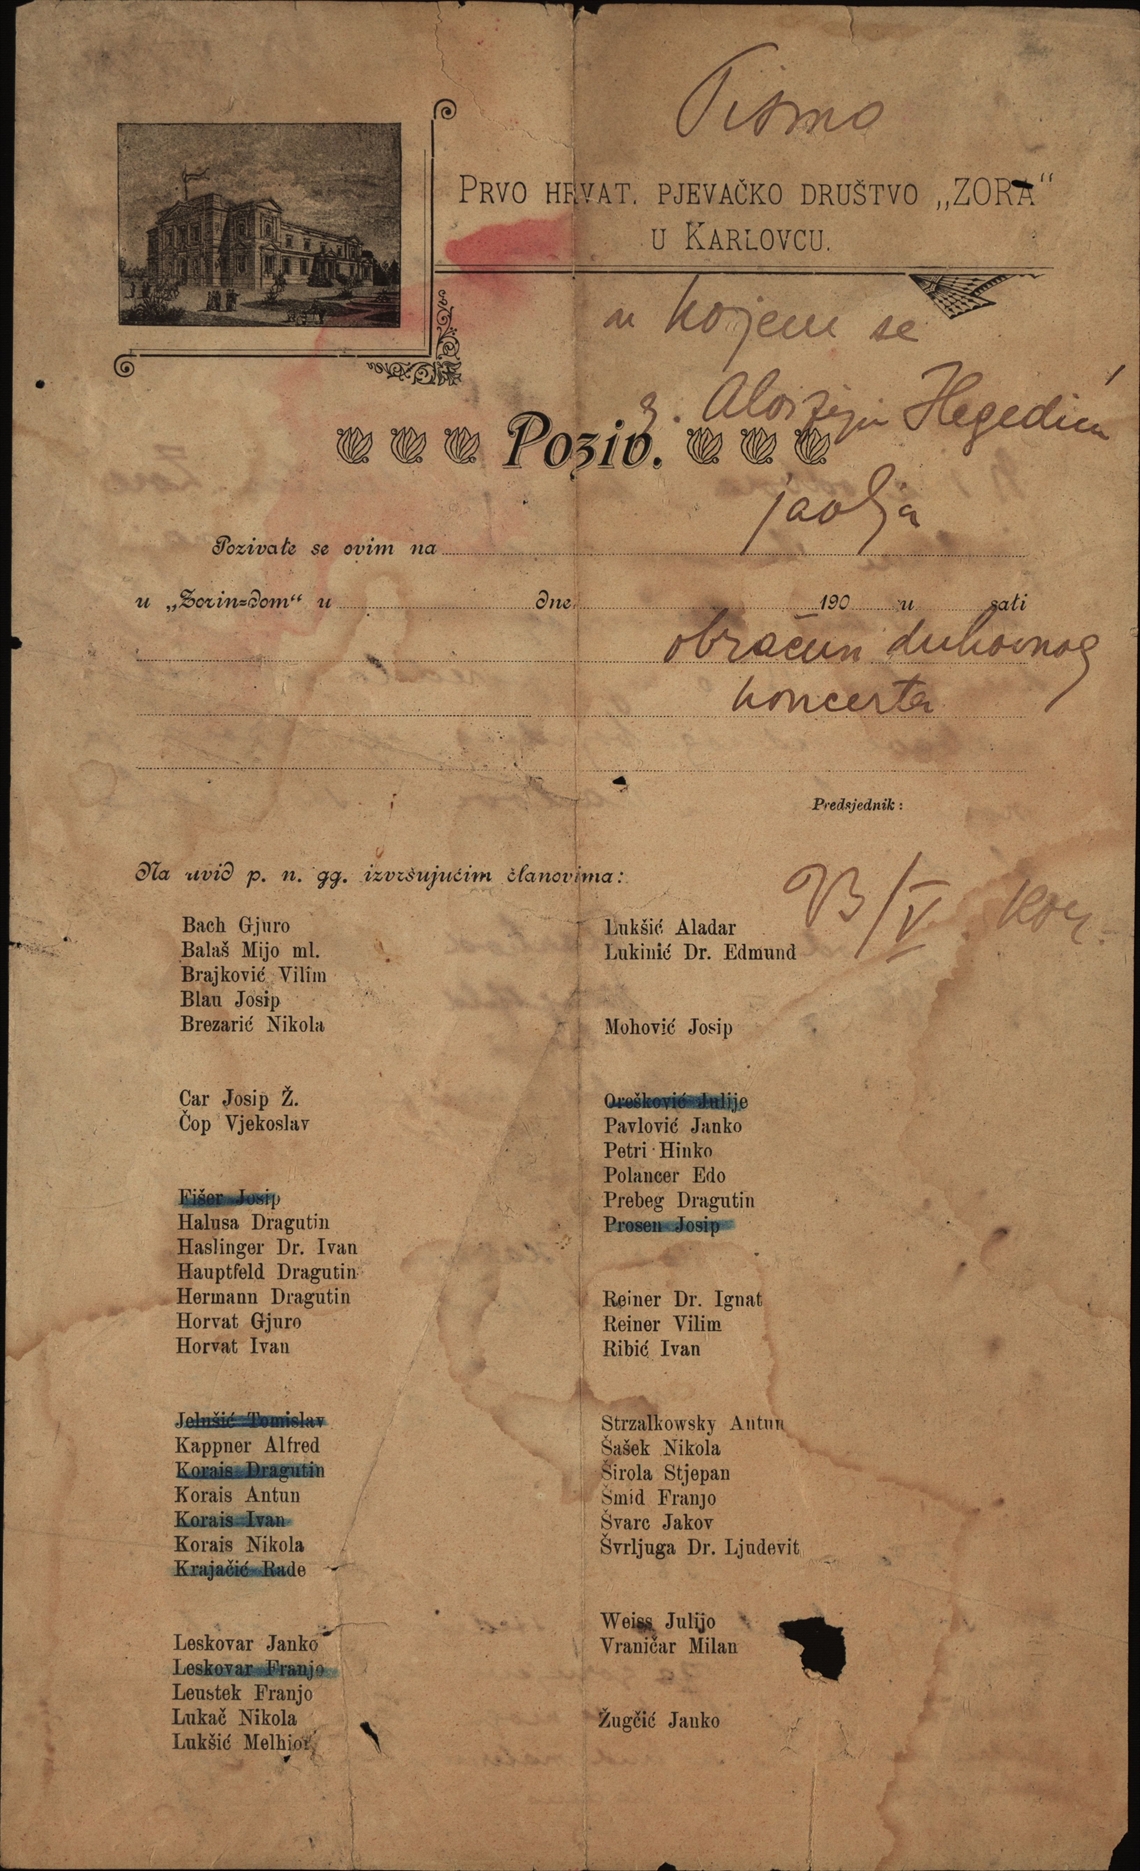 Pismo
PRVO HRVAT. PJEVAČKO DRUŠTVO „ZORA“
U KARLOVCU.
u kojem se
g. Alojziju Hegediću
Poziv.
javlja
Pozivate se ovim na
u „Zorin-dom“ u dne 190 u sati
obračun duhovnog
koncerta
Predsjednik:
Na uvid p. n. gg. izvršujućim članovima:
Bach Gjuro
Balaš Mijo ml.
Brajković Vilim
Blau Josip
Brezarić Nikola
Car Josip Ž.
Čop Vjekoslav
Fišer Josip
Halusa Dragutin
Haslinger Dr. Ivan
Hauptfeld Dragutin
Hermann Dragutin
Horvat Gjuro
Horvat Ivan
Jelušić Tomislav
Kappner Alfred
Korais Dragutin
Korais Antun
Korais Ivan
Korais Nikola
Krajačić Rade
Leskovar Janko
Leskovar Franjo
Leustek Franjo
Lukač Nikola
Lukšić Melhior
Lukšić Aladar
Lukinić Dr. Edmund
Mohović Josip
Orešković Julije
Pavlović Janko
Petri Hinko
Polancer Edo
Prebeg Dragutin
Prosen Josip
Reiner Dr. Ignat
Reiner Vilim
Ribić Ivan
Strzalkowsky Antun
Šašek Nikola
Širola Stjepan
Šmid Franjo
Švarc Jakov
Švrljuga Dr. Ljudevit
Weiss Julijo
Vraničar Milan
Žugčić Janko